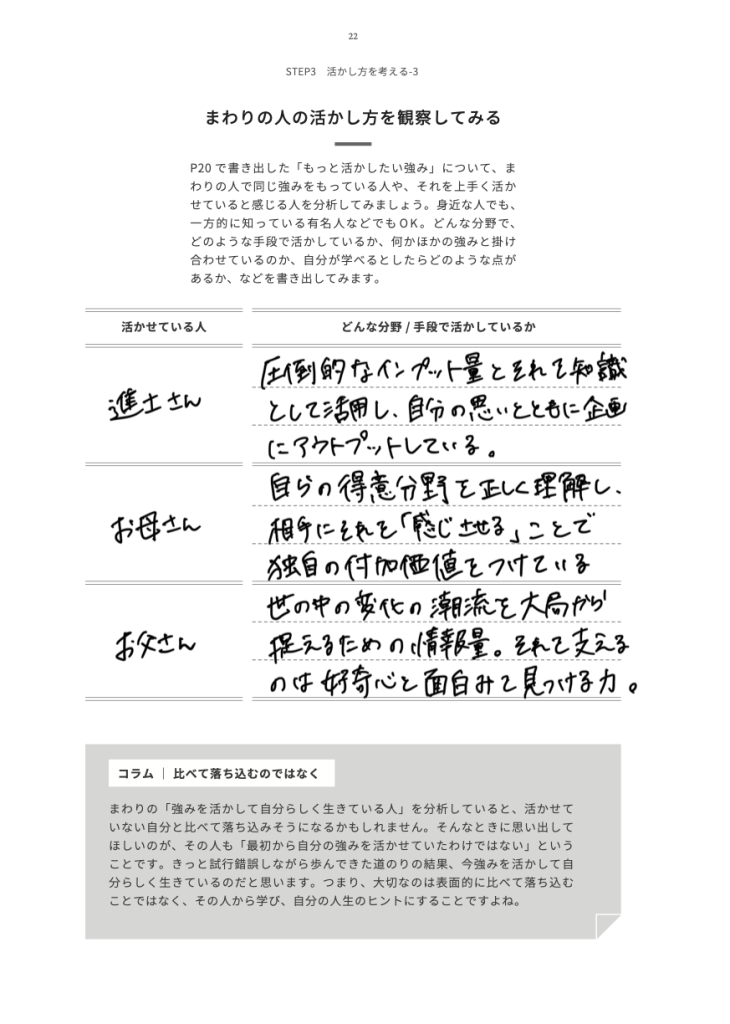 22
STEP3 活かし方を考える-3
まわりの人の活かし方を観察してみる
P20 で書き出した「もっと活かしたい強み」について、ま
わりの人で同じ強みをもっている人や、それを上手く活か
せていると感じる人を分析してみましょう。身近な人でも、
一方的に知っている有名人などでもOK。どんな分野で、
どのような手段で活かしているか、何かほかの強みと掛け
合わせているのか、自分が学べるとしたらどのような点が
あるか、などを書き出してみます。
活かせている人
どんな分野 / 手段で活かしているか
進士さん
圧倒的なインプット量とそれを知識
として活用し、自分の思いとともに企画
にアウトプットしている。
お母さん
自らの得意分野を正しく理解し、
相手にそれを「感じさせる」ことで
独自の付加価値をつけている
お父さん
世の中の変化の潮流を大局から
捉えるための情報量。それを支える
のは好奇心と面白みを見つける力。
コラム | 比べて落ち込むのではなく
まわりの「強みを活かして自分らしく生きている人」を分析していると、活かせて
いない自分と比べて落ち込みそうになるかもしれません。そんなときに思い出して
ほしいのが、その人も「最初から自分の強みを活かせていたわけではない」という
ことです。きっと試行錯誤しながら歩んできた道のりの結果、今強みを活かして自
分らしく生きているのだと思います。つまり、大切なのは表面的に比べて落ち込む
ことではなく、その人から学び、自分の人生のヒントにすることですよね。